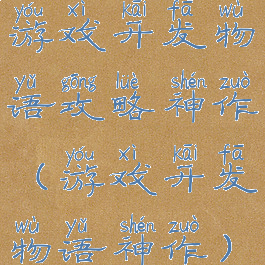 yóu xì kāi fā wù
游戏开发物
yǔ gōng lüè shén zuò
语攻略神作
yóu xì kāi fā
（游戏开发
wù yǔ shén zuò
物语神作）